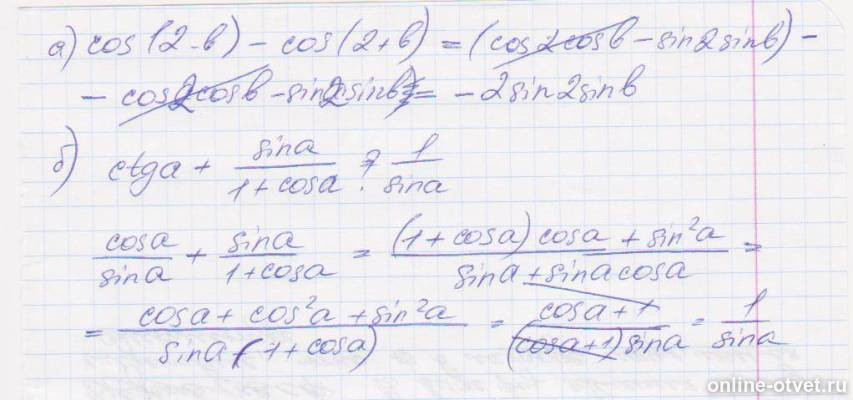 а) cos(2-b) - cos(2+b) = (cos2cosb - sin2sinb) -
- cos2cosb - sin2sinb) = - 2sin2sinb
б) ctga + sina/(1+cosa) = 1/sina
cosa/sina + sina/(1+cosa) = ((1+cosa)cosa + sin²a)/(sina + sinacosa) =
= (cosa + cos²a + sin²a)/(sina(1+cosa)) = (cosa+1)/((cosa+1)sina) = 1/sina
online-otvet.ru